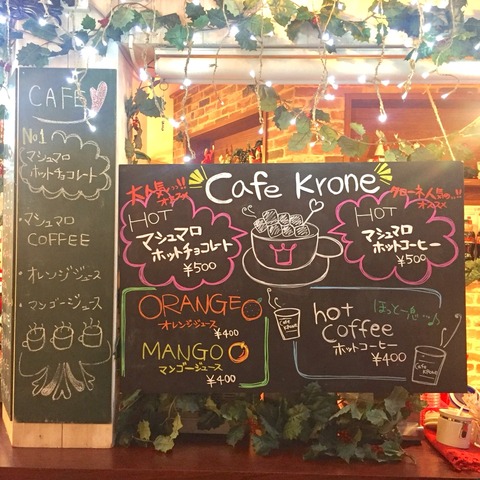 CAFE
No1
マシュマロ
ホットチョコレート
・マシュマロ
COFFEE
・オレンジジュース
・マンゴージュース
Cafe Krone
大人気…!!
オススメ
HOT
マシュマロ
ホットチョコレート
¥500
クローネ人気No.1!!
オススメ
HOT
マシュマロ
ホットコーヒー
¥500
ORANGE
オレンジジュース
¥400
MANGO
マンゴージュース
¥400
ほっと一息…♪
hot
coffee
ホットコーヒー
¥400
Cafe
KRONE
Cafe
KRONE